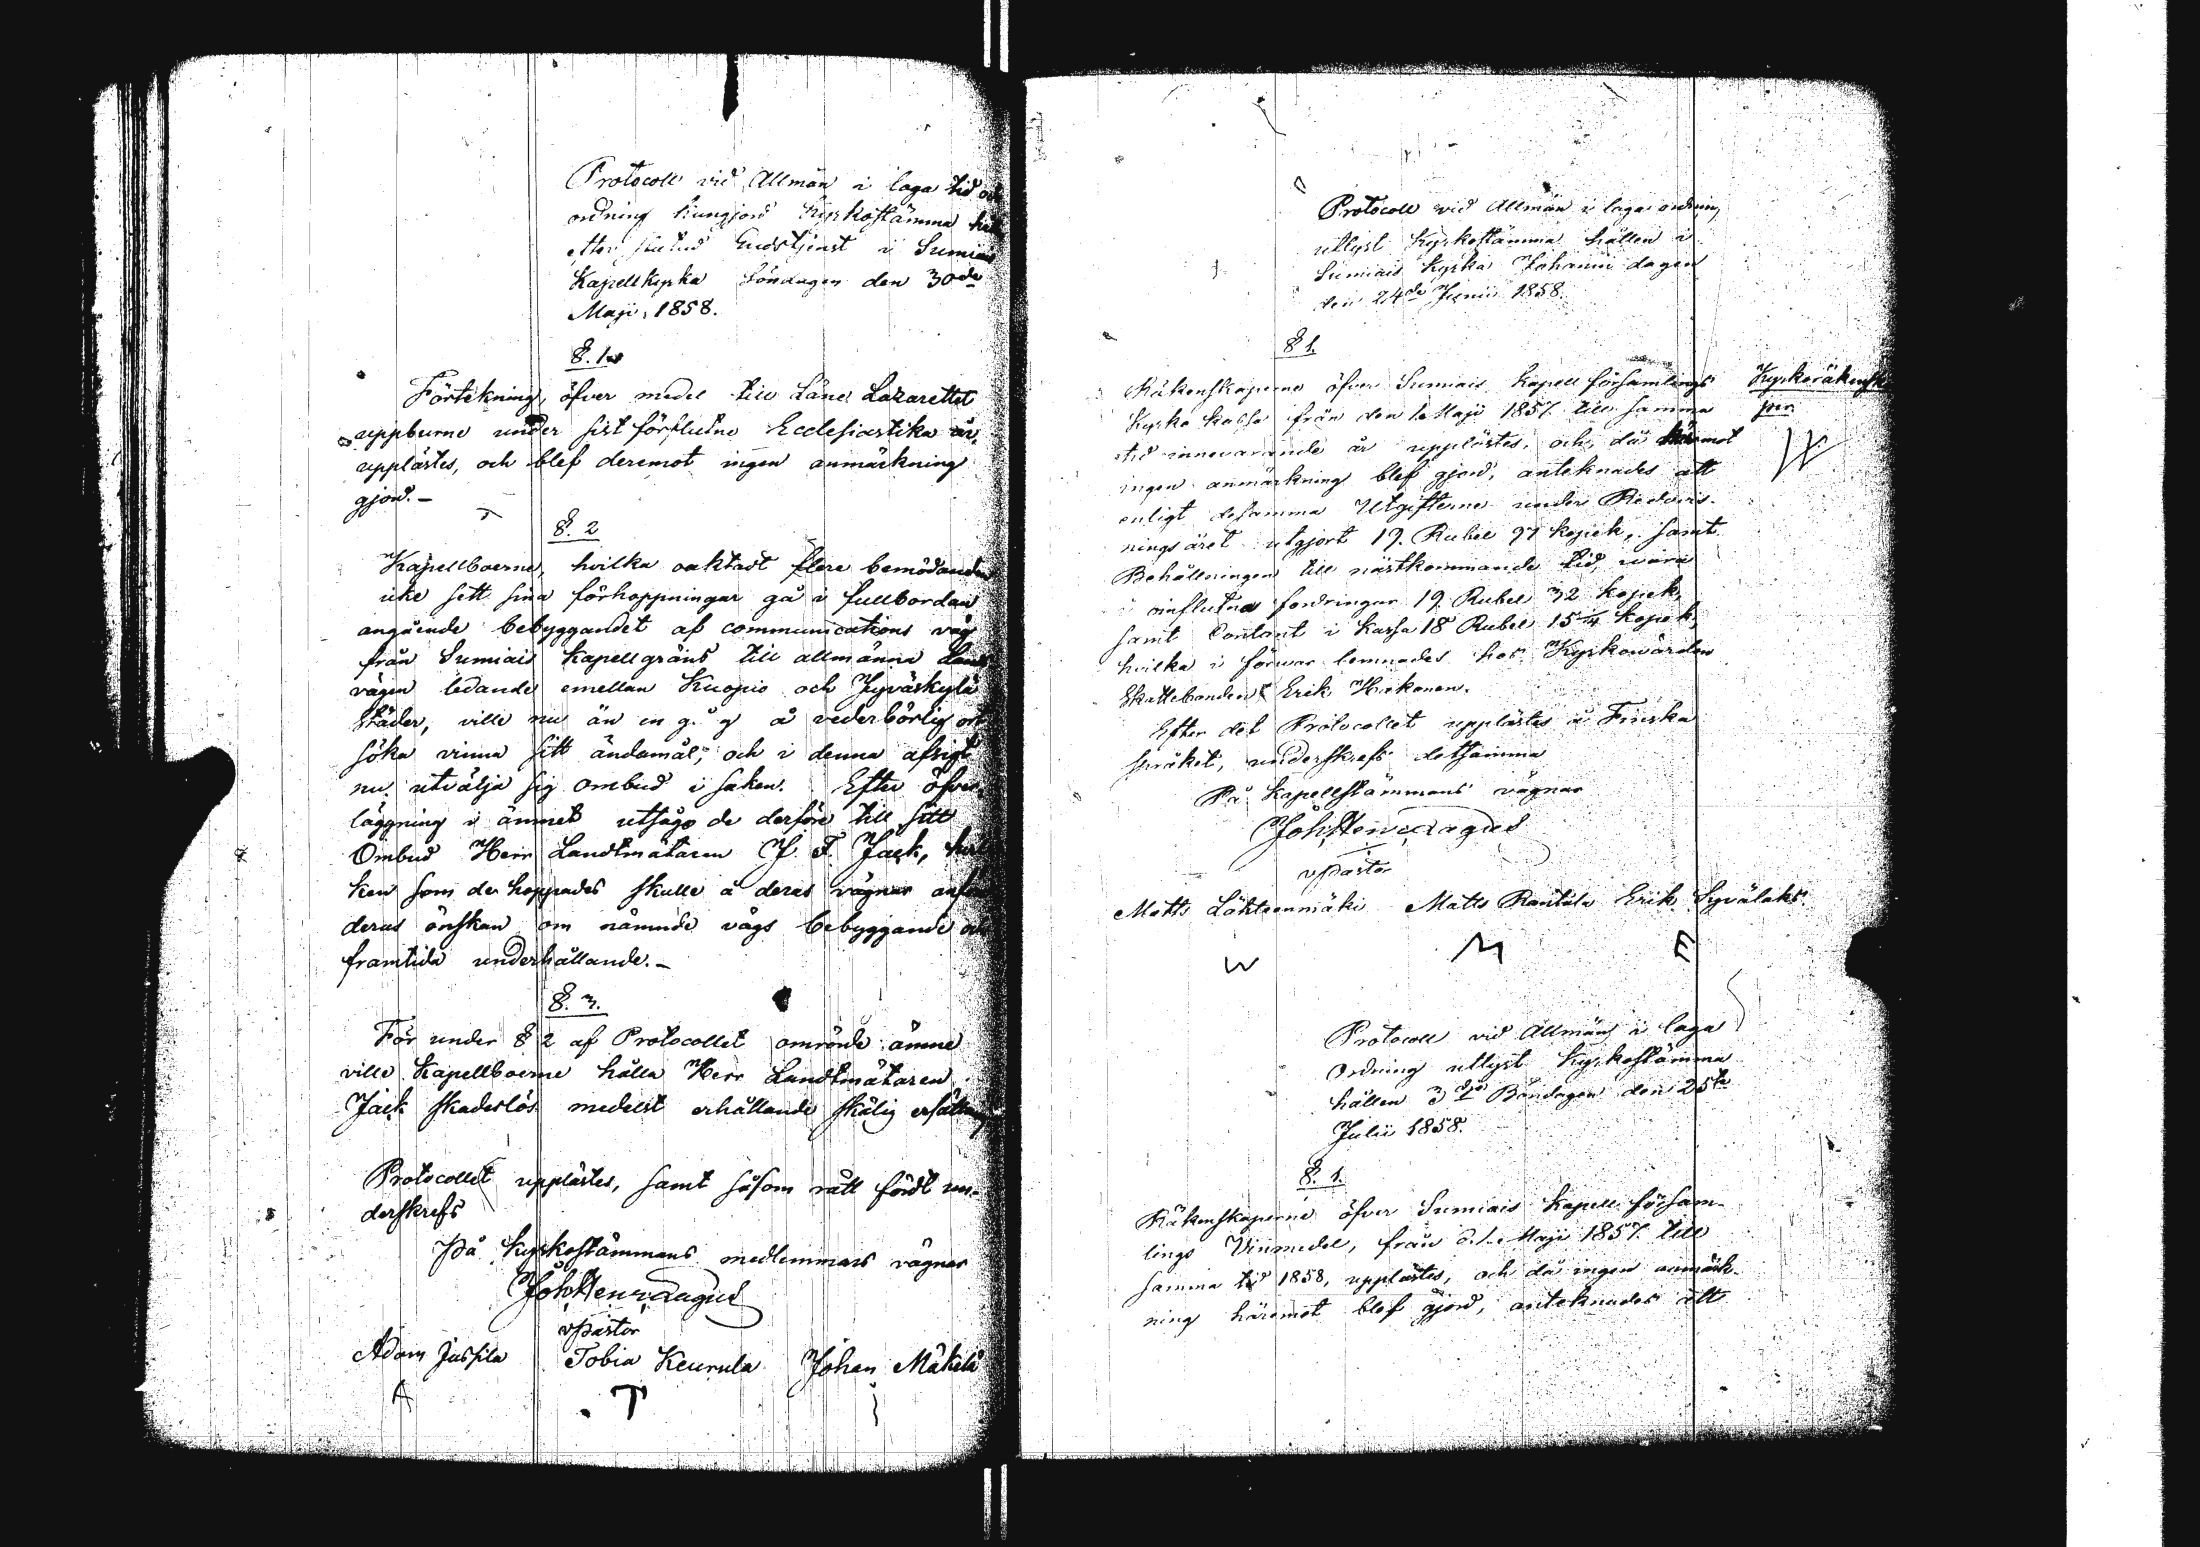 Protocoll vid Allmän i laga tid och
ordning kungjord Kyrkostämma
efter slutad Gudstjenst i Sumiais
Kapellkyrka Söndagen den 30de
Maji 1858.
§. 1
Förtekning öfver medel till Läns Lazarettet
uppburne under sist förflutne Ecclesiastika år,
upplästes, och blef deremot ingen anmärkning
gjord. –
§. 2
Kapellboerne, hvilka oaktadt flere bemödanden
icke sett sina förhoppningar gå i fullbordan
angående bebyggandet af communications väg
från Sumiais Kapellgräns till allmänna Lands
vägen ledande emellan Kuopio och Jyväskylä
städer, ville nu än en gång å vederbörlig ort
söka vinna sitt ändamål, och i denna afsigt
nu utvälja sig ombud i saken. Efter öfver-
läggning i ämnet utsågo de derföre till sitt
Ombud Herr Landtmätaren J. F. Jack, hvil
ken som de hoppades skulle å deras vägnar
deras önskan om nämnde vägs bebyggande och
framtida underhållande. –
§. 3.
För under § 2 af Protocollet omrörde ämne
ville Kapellboerne hålla Herr Landtmätaren
Jack skadeslös medelst erhållande skälig ersättning
Protocollet upplästes, samt såsom rätt fördt un-
derskrefs
På Kyrkostämmans medlemmars vägnar
Joh Henr
vPastor
Adam Jussila Tobia Keurula Johan Mäkelä
A T j
Protocoll vid Allmän i laga ordning
utlyst Kyrkostämma hållen i
Sumiais Kyrka Johannis dagen
den 24de Junii 1858.
§ 1.
Räkenskaperne öfver Sumiais Kapell församlings
Kyrko kassa från den 1 Maji 1857 till samma
tid innevarande år upplästes, och då häremot
ingen anmärkning blef gjord, anteknades att
enligt desamma Utgifterne under Redovis-
nings året utgjort 19. Rubel 97 kopek, samt
Behållningen till nästkommande tid, wara
i oinflutna fordringar 19. Rubel 32 kopek,
samt Contant i Kassa 18 Rubel 15 kopek,
hvilka i förwar lemnades hos Kyrkowärden
Skattebonden Erik Hakonen.
Efter det Protocollet upplästes å Finska
språket, underskrefs detsamma
På Kapellstämmans vägnar
Joh Henr
vPastor
Matts Lökteenmäki Matts Rantala Erik Syvälaks
W M E
Kyrkoräkenska
per
Protocoll vid Allmän i laga
Ordning utlyst Kyrkostämma
hållen 3dje Böndagen den 25te
Julii 1858.
§. 1.
Räkenskaperne öfver Sumiais Kapell försam-
lings Vinmedel, från d. 1. Maji 1857 till
samma tid 1858, upplästes, och då ingen anmärk-
ning häremot blef gjord, anteknades att